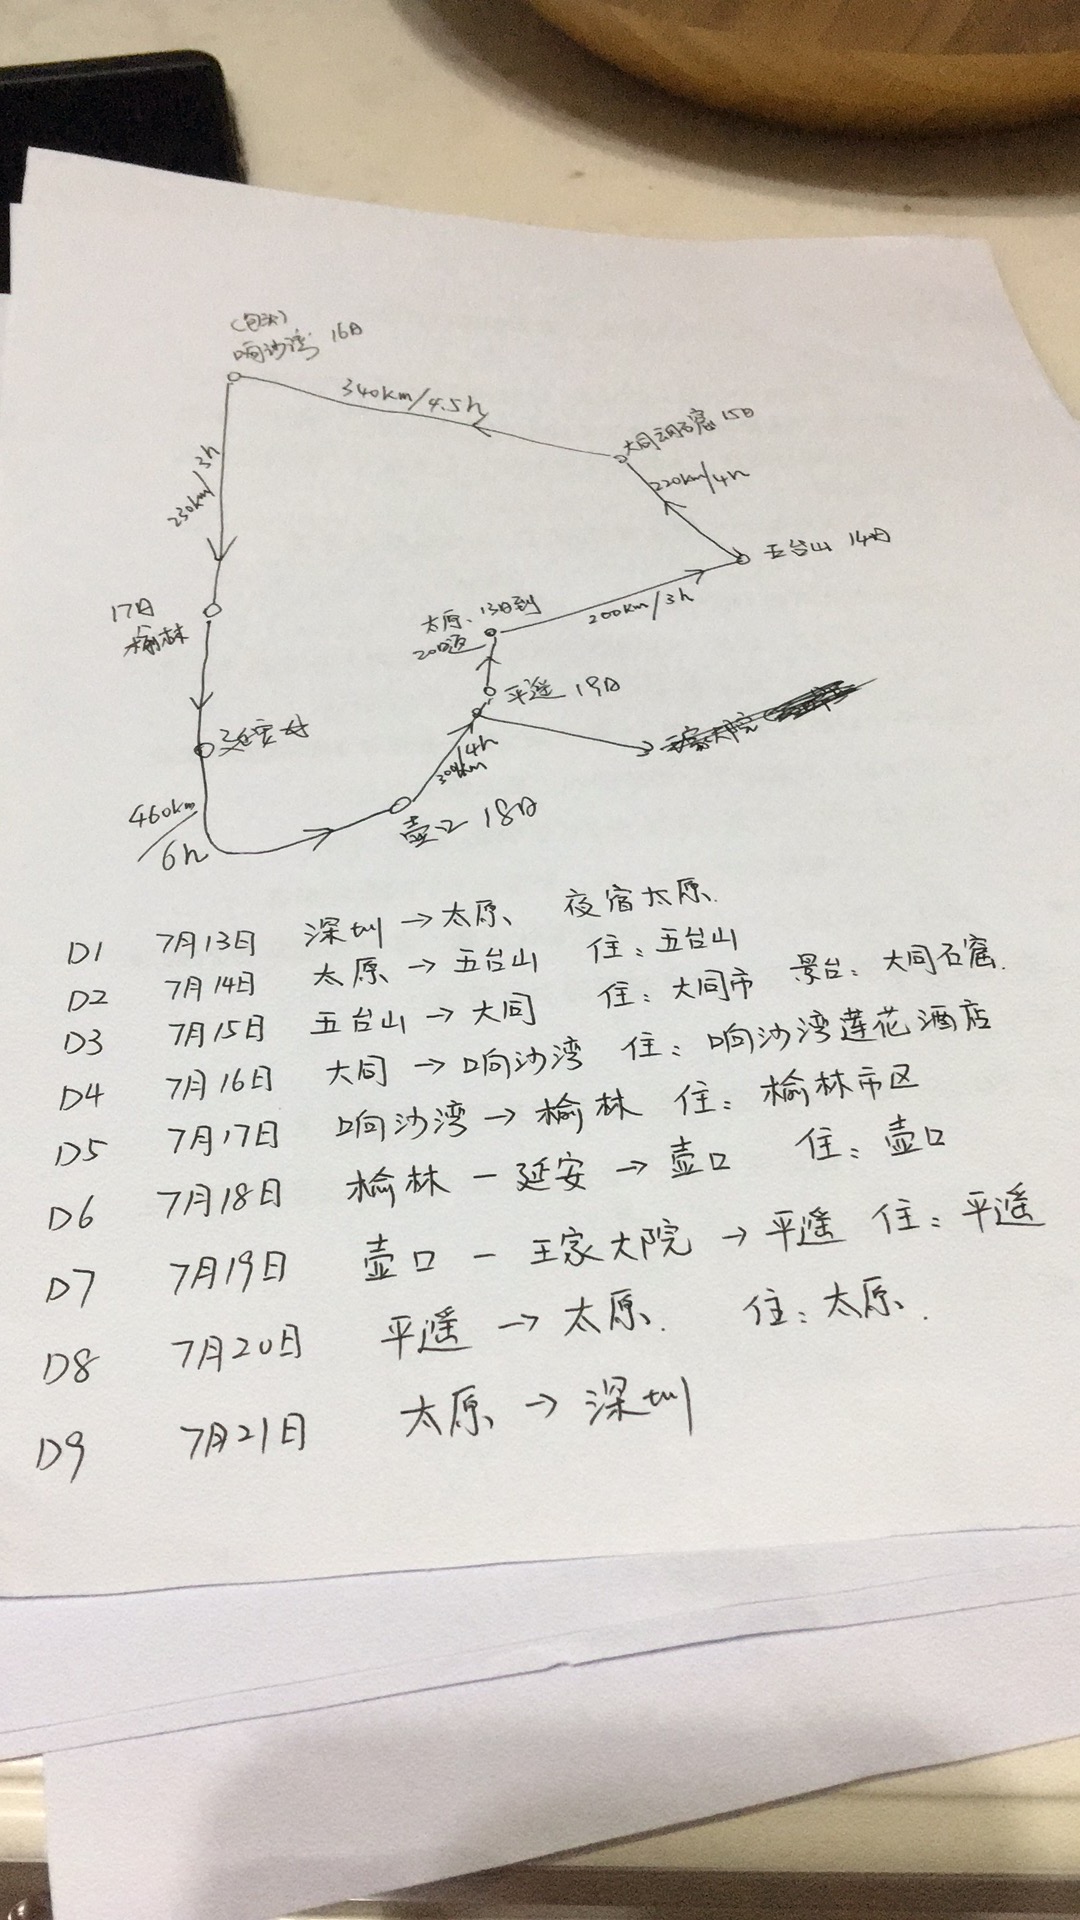 (包头)
响沙湾 16日
340km/4.5h
大同云冈石窟 15日
230km/3h
220km/4h
五台山 14日
17日
榆林
太原、13日到
20日返
200km/3h
平遥 19日
延安
300km/4h
460km/6h
壶口 18日
D1 7月13日 深圳→太原、 夜宿太原.
D2 7月14日 太原→五台山 住:五台山
D3 7月15日 五台山→大同 住:大同市 景台:大同石窟.
D4 7月16日 大同→响沙湾 住:响沙湾莲花酒店
D5 7月17日 响沙湾→榆林 住:榆林市区
D6 7月18日 榆林－延安→壶口 住:壶口
D7 7月19日 壶口－王家大院→平遥 住:平遥
D8 7月20日 平遥→太原. 住:太原.
D9 7月21日 太原、→深圳